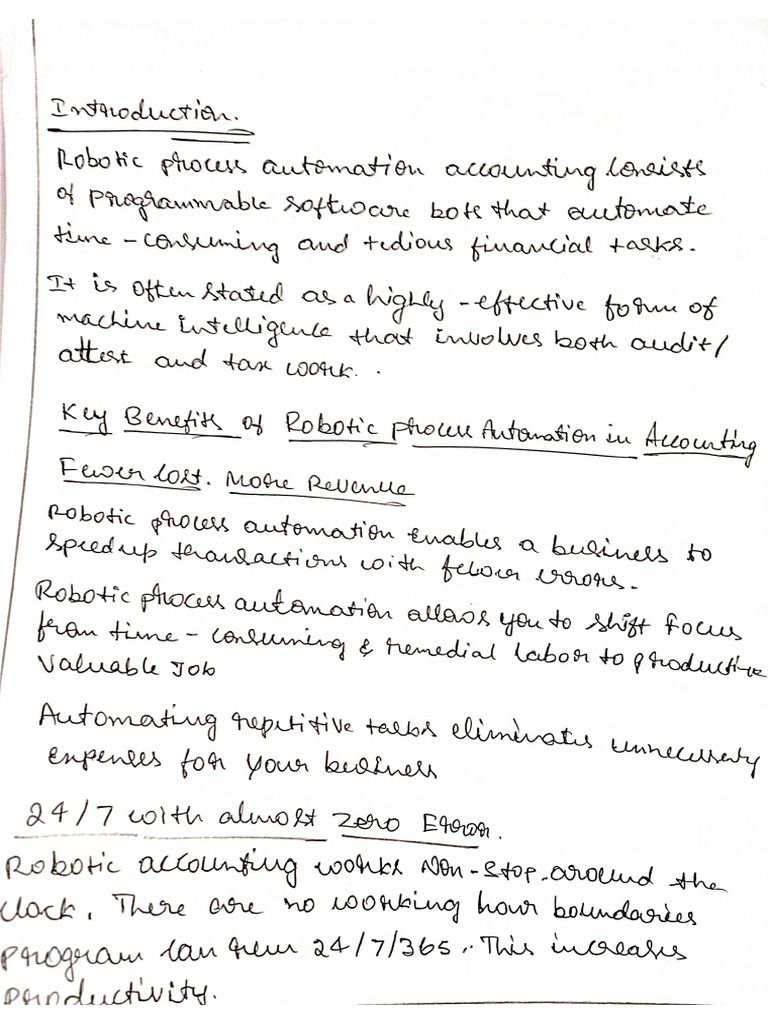 Introduction.
Robotic process automation accounting consists
of programmable software bots that automate
time - consuming and tedious financial tasks.
It is often stated as a highly - effective form of
machine intelligence that involves both audit/
attest and tax work.
Key Benefits of Robotic process Automation in Accounting
Fewer Cost. More Revenue
Robotic process automation enables a business to
speedup transactions with fewer errors.
Robotic process automation allows you to shift focus
from time - consuming & remedial labor to productive
valuable Job
Automating repetitive tasks eliminates unnecessary
expenses for your business
24/7 with almost Zero Error.
Robotic accounting works Non-Stop around the
clock. There are no working hour boundaries
program can run 24/7/365. This increases
productivity.